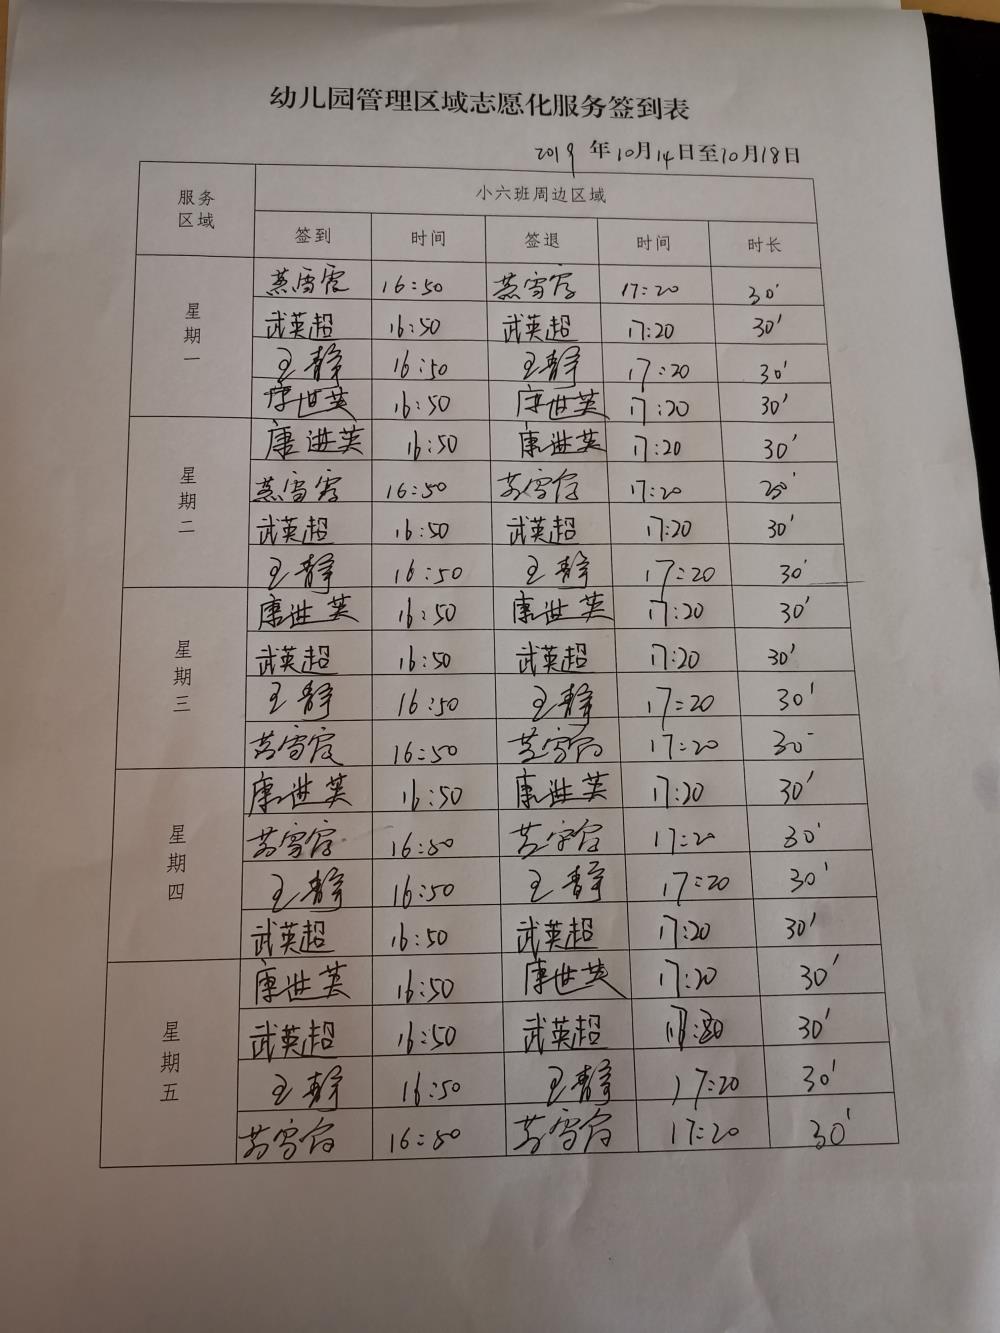 幼儿园管理区域志愿化服务签到表
2019年10月14日至10月18日
服务区域 小六班周边区域
签到 时间 签退 时间 时长
星期一
16:50 17:20 30'
武英超 16:50 武英超 17:20 30'
王静 16:50 王静 17:20 30'
康世英 16:50 康世英 17:20 30'
星期二
康世英 16:50 康世英 17:20 30'
16:50 17:20
武英超 16:50 武英超 17:20 30'
王静 16:50 王静 17:20 30'
星期三
康世英 16:50 康世英 17:20 30'
武英超 16:50 武英超 17:20 30'
王静 16:50 王静 17:20 30'
16:50 17:20 30'
星期四
康世英 16:50 康世英 17:20 30'
16:50 17:20 30'
王静 16:50 王静 17:20 30'
武英超 16:50 武英超 17:20 30'
星期五
康世英 16:50 康世英 17:20 30'
武英超 16:50 武英超 30'
王静 16:50 王静 17:20 30'
16:50 17:20 30'